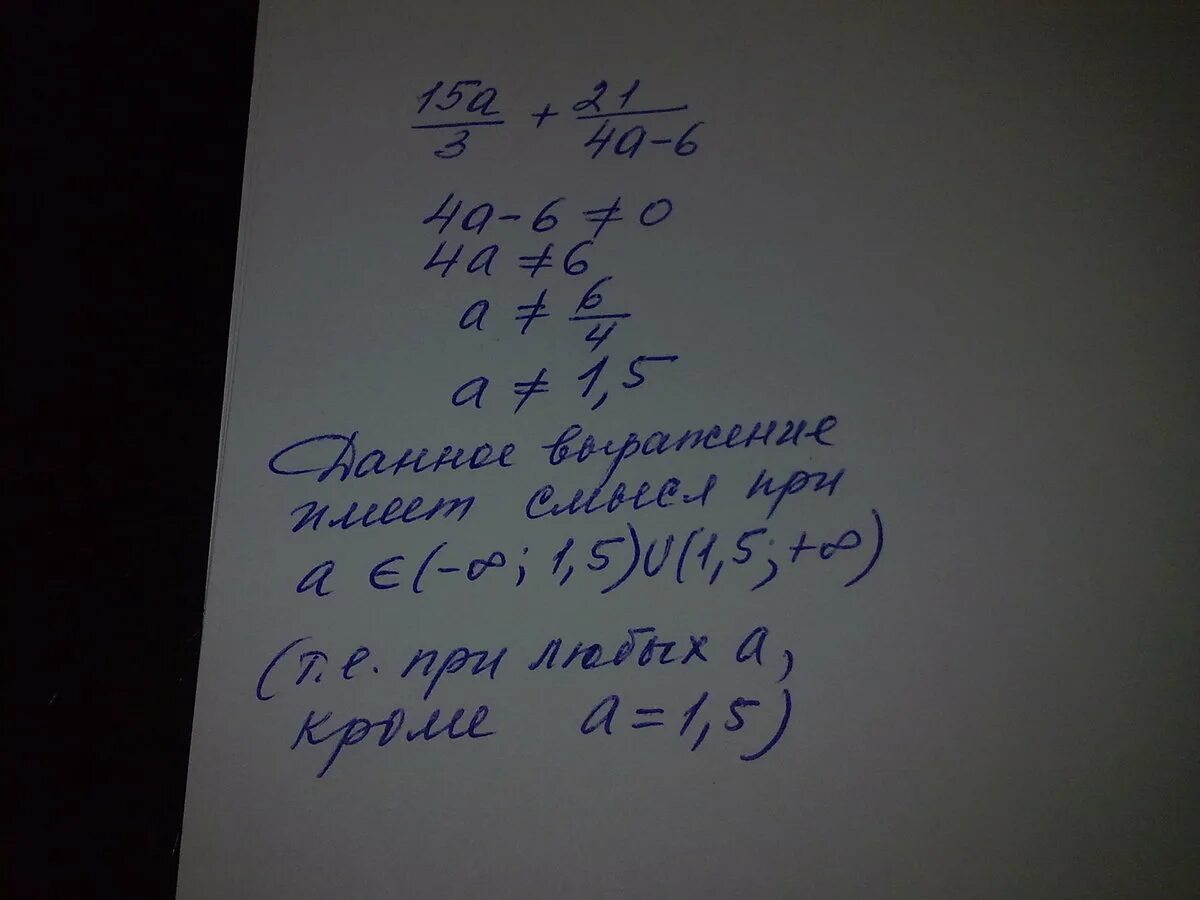 15a/3 + 21/4a-6
4a-6≠0
4a≠6
a≠6/4
a≠1,5
Данное выражение
имеет смысл при
a∈(-∞; 1,5)∪(1,5;+∞)
(т.е. при любых a,
кроме a=1,5)